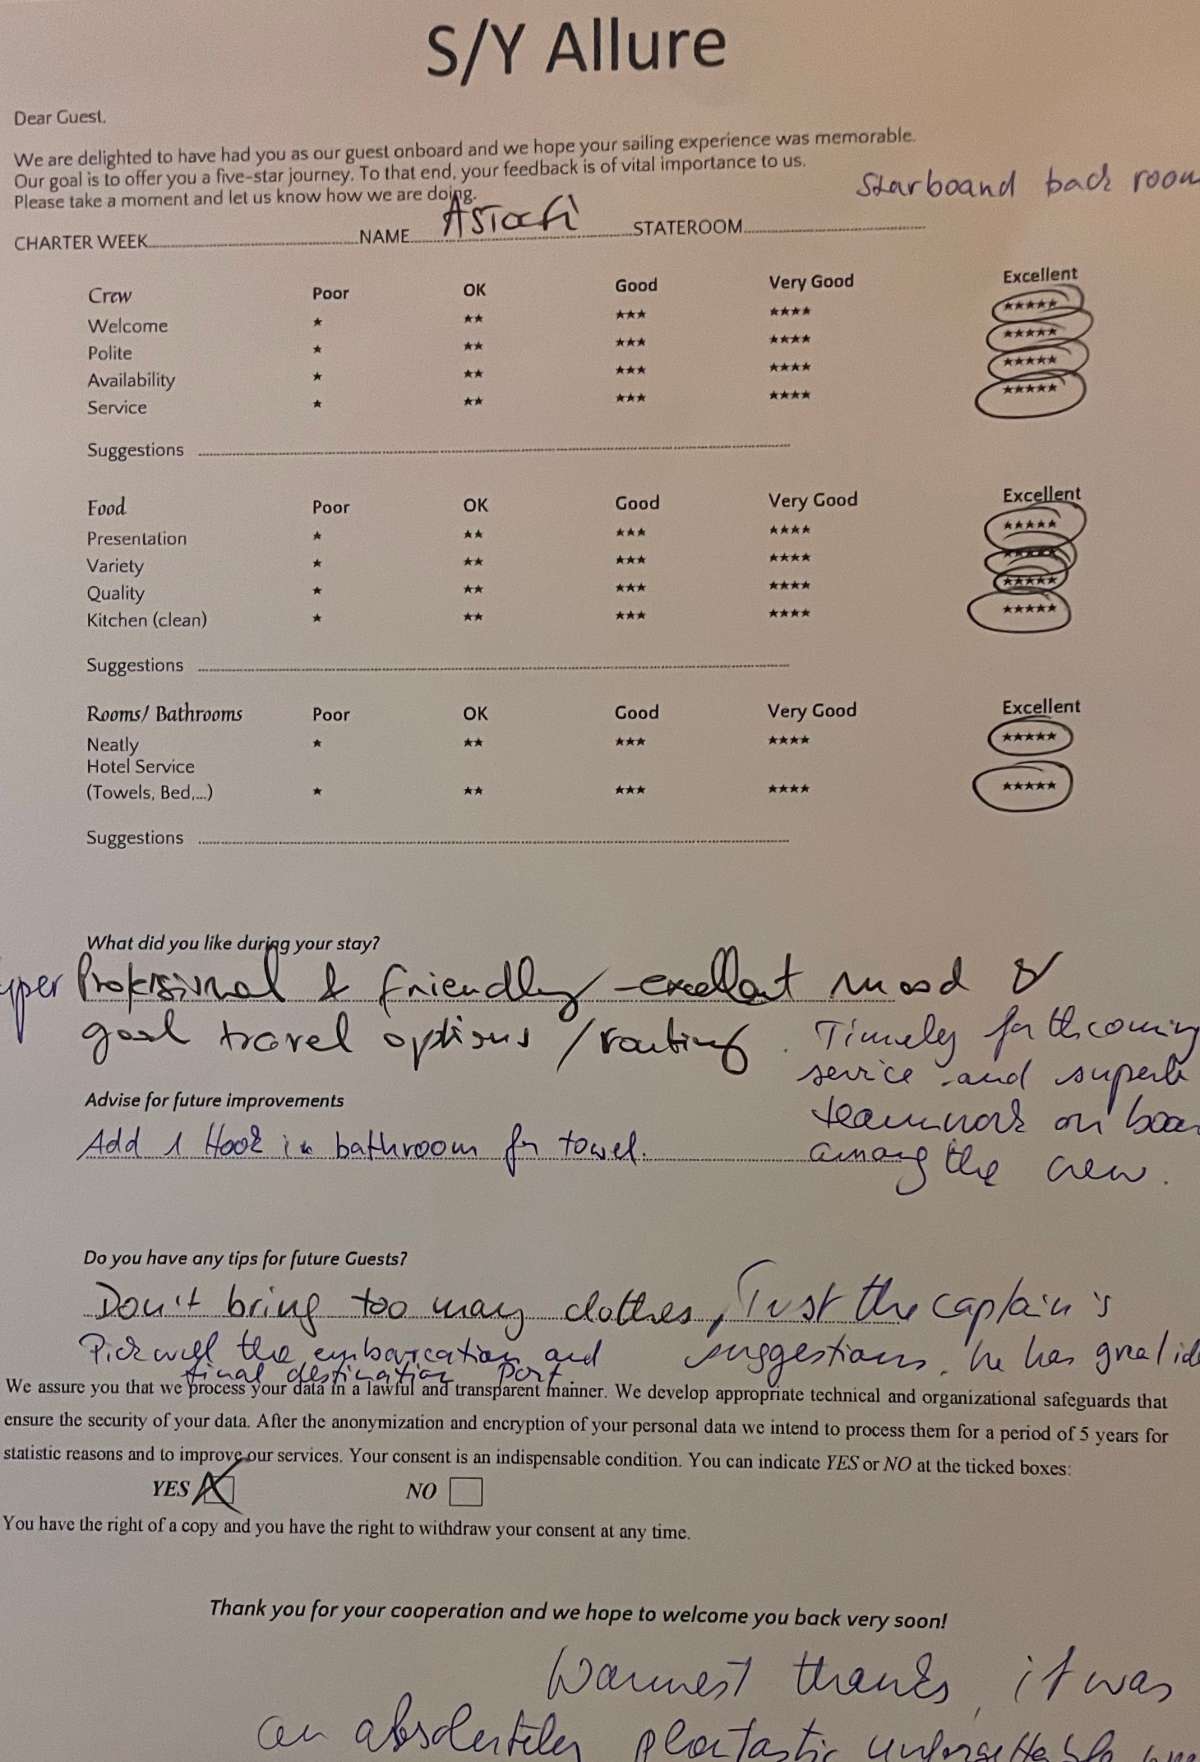 S/Y Allure
Dear Guest,
We are delighted to have had you as our guest onboard and we hope your sailing experience was memorable.
Our goal is to offer you a five-star journey. To that end, your feedback is of vital importance to us.
Please take a moment and let us know how we are doing.
Starboand back room
CHARTER WEEK NAME STATEROOM
Crew Poor OK Good Very Good Excellent
Welcome ★ ★★ ★★★ ★★★★ ★★★★★
Polite ★ ★★ ★★★ ★★★★ ★★★★★
Availability ★ ★★ ★★★ ★★★★ ★★★★★
Service ★ ★★ ★★★ ★★★★ ★★★★★
Suggestions
Food Poor OK Good Very Good Excellent
Presentation ★ ★★ ★★★ ★★★★ ★★★★★
Variety ★ ★★ ★★★ ★★★★ ★★★★★
Quality ★ ★★ ★★★ ★★★★ ★★★★★
Kitchen (clean) ★ ★★ ★★★ ★★★★ ★★★★★
Suggestions
Rooms/ Bathrooms Poor OK Good Very Good Excellent
Neatly ★ ★★ ★★★ ★★★★ ★★★★★
Hotel Service
(Towels, Bed,...) ★ ★★ ★★★ ★★★★ ★★★★★
Suggestions
What did you like during your stay?
Professional & friendly - excellent mood &
good travel options / routing.
Timely forthcoming
service and superb
teamwork on
among the crew.
Advise for future improvements
Add 1 Hook in bathroom for towel.
Do you have any tips for future Guests?
Don't bring too many clothes, Trust the captain's
Pick well the embarcation and suggestions, he has great
final destination port.
We assure you that we process your data in a lawful and transparent manner. We develop appropriate technical and organizational safeguards that
ensure the security of your data. After the anonymization and encryption of your personal data we intend to process them for a period of 5 years for
statistic reasons and to improve our services. Your consent is an indispensable condition. You can indicate YES or NO at the ticked boxes:
YES X NO
You have the right of a copy and you have the right to withdraw your consent at any time.
Thank you for your cooperation and we hope to welcome you back very soon!
Warmest thanks, it was
an absolutely phantastic